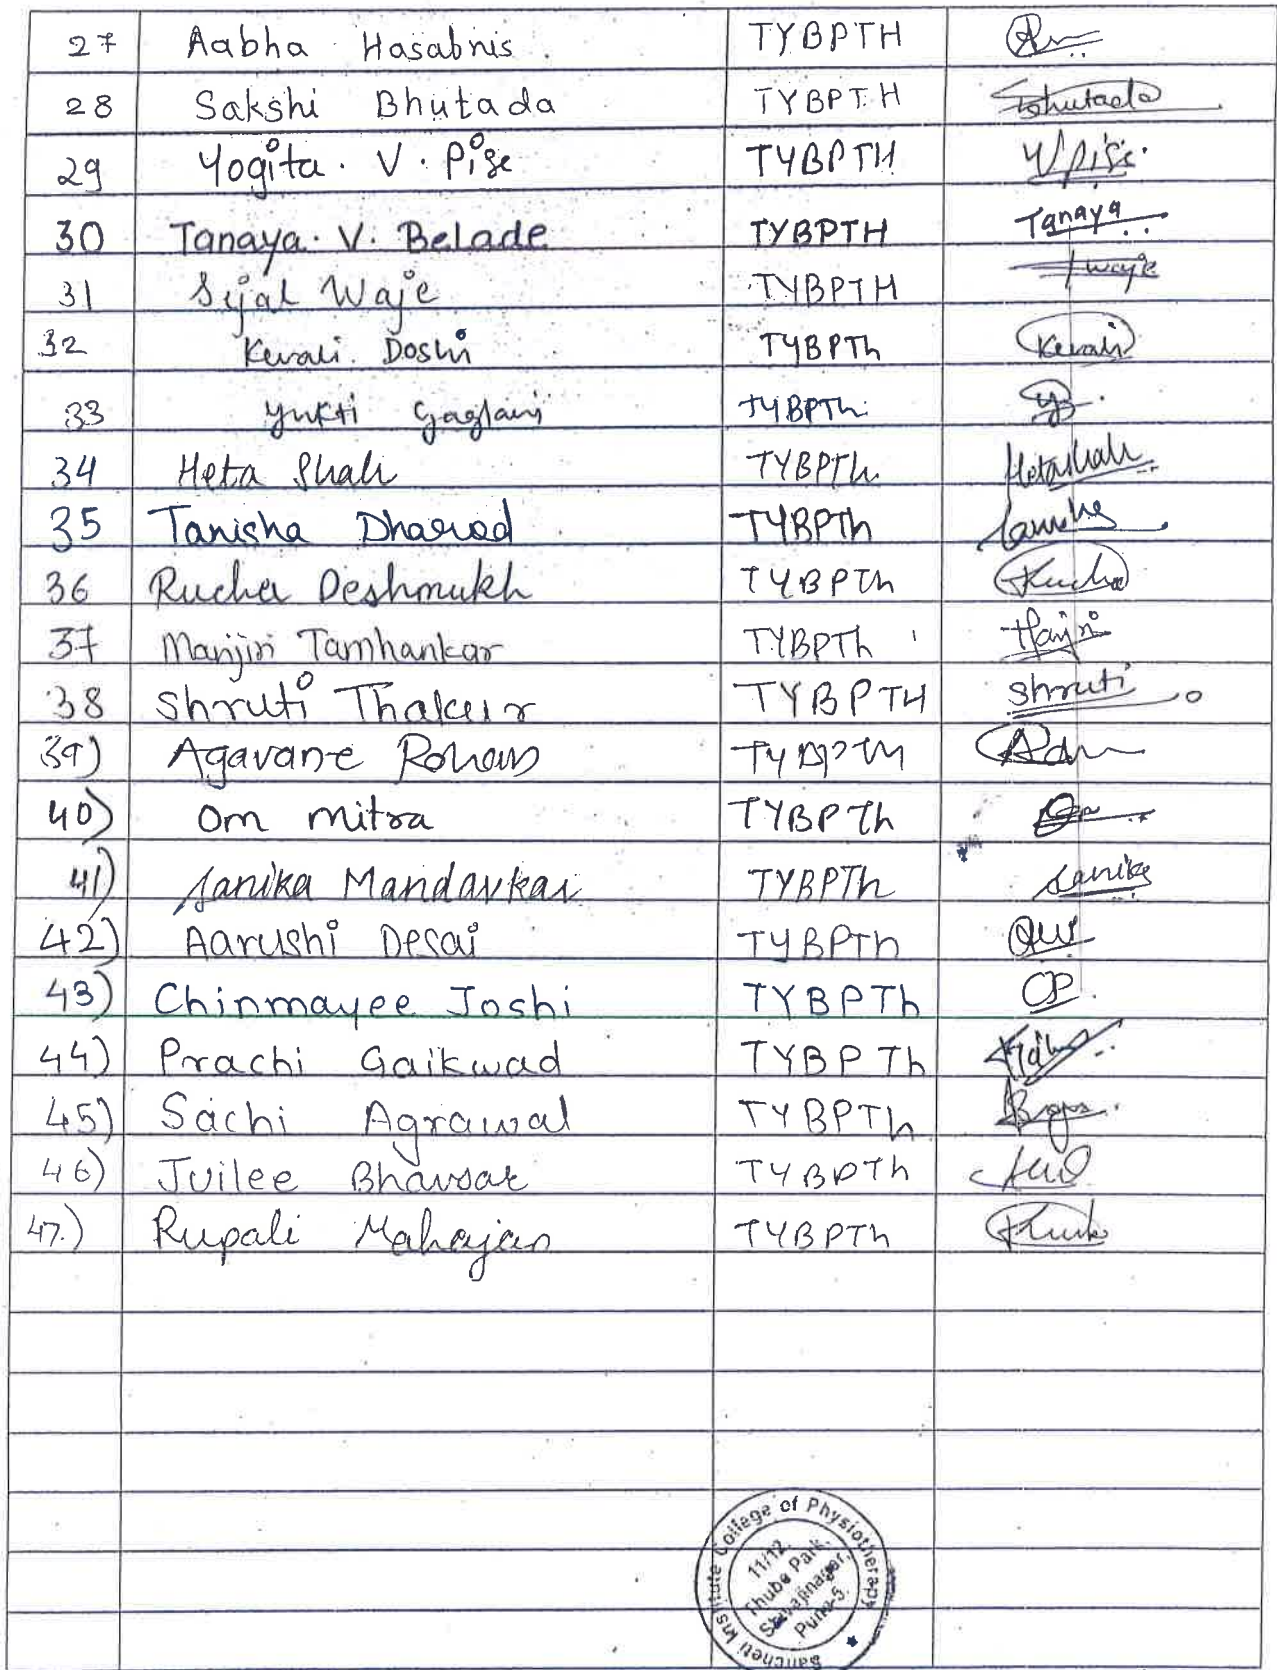 27 Aabha Hasabnis. TYBPTH
28 Sakshi Bhutada TYBPTH Bhutada
29 Yogita. V. Pise TYBPTH VPise.
30 Tanaya. V. Belade TYBPTH Tanaya
31 Sejal Waje TYBPTH Waje
32 Kevali. Doshi TYBPTh Kevali
33 Yukti Gaglani TYBPTh
34 Heta Shah TYBPTh. Hetashah
35 Tanisha Dharod TYBPTh Tanisha
36 Rucha Deshmukh TYBPTh Rucha
37 Manjiri Tamhankar TYBPTh
38 Shruti Thakur TYBPTH Shruti
39) Agavane Rohan TYBPTH
40) Om mitra TYBPTh
41) Sanika Mandavkar TYBPTh Sanika
42) Aarushi Desai TYBPTh
43) Chinmayee Joshi TYBPTh CP.
44) Prachi Gaikwad TYBPTh
45) Sachi Agrawal TYBPTh
46) Juilee Bhavsar TYBPTh
47.) Rupali Mahajan TYBPTh
Sancheti Institute College of Physiotherapy
11/12,
Thube Park,
Shivajinagar,
Pune-5.